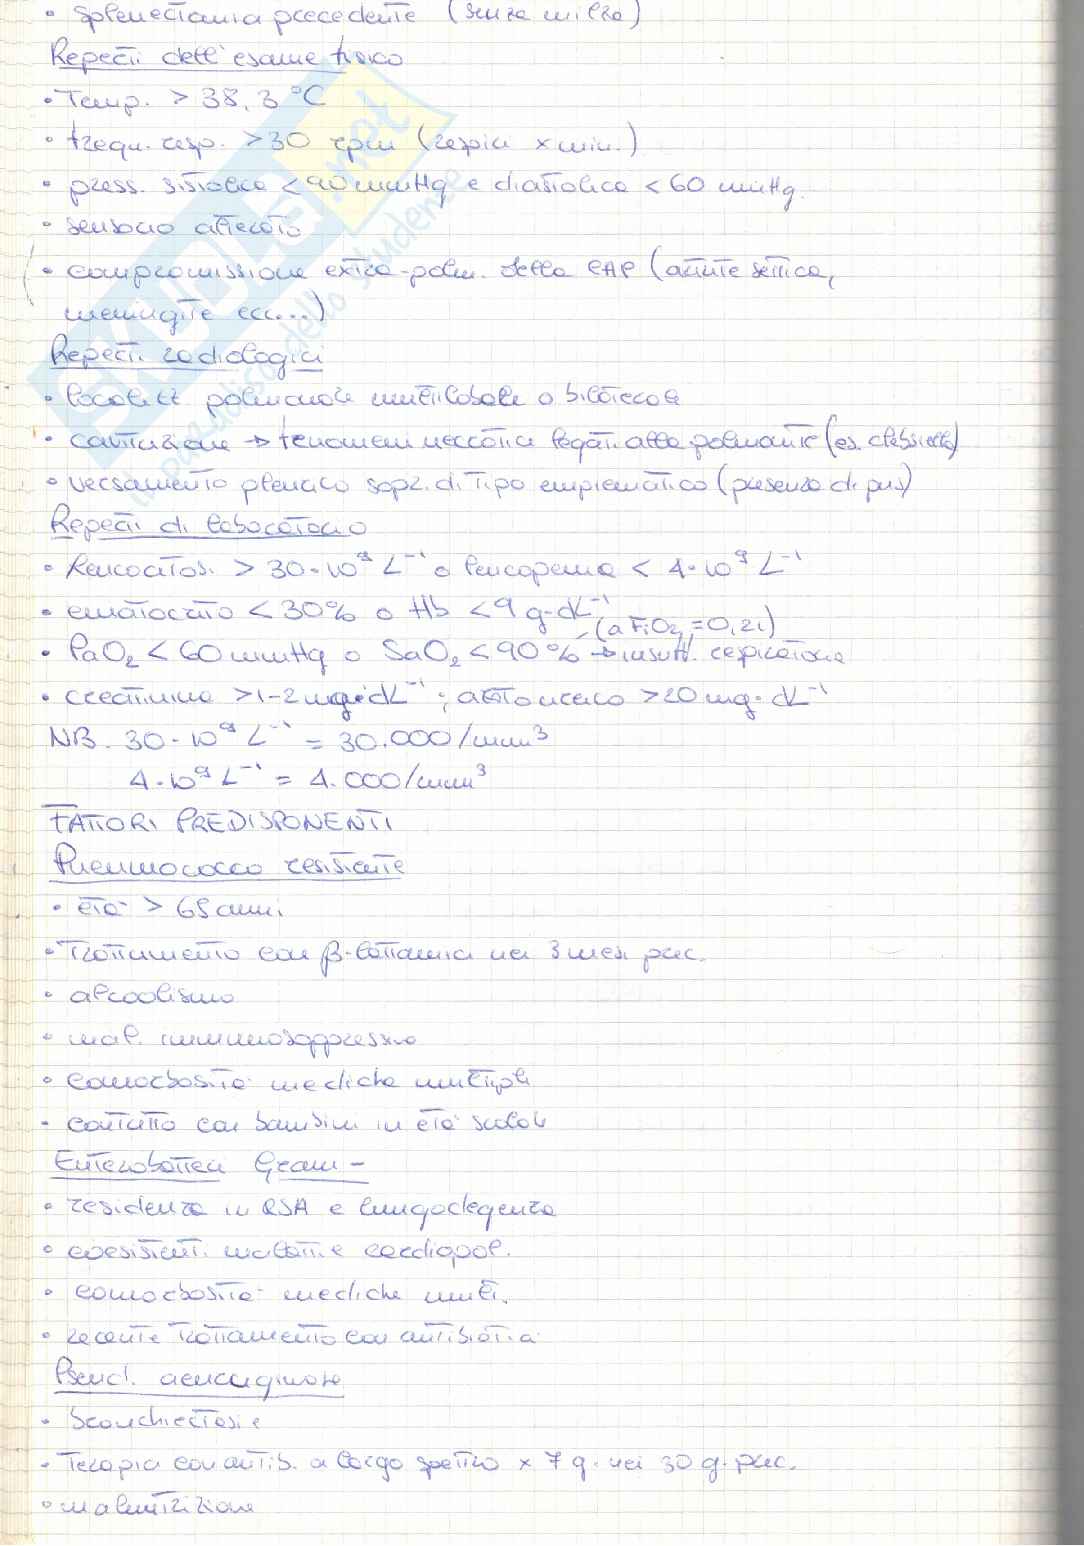 • splenectomia precedente (senza milza)
Reperti dell'esame fisico
• Temp. > 38,3 °C
• frequ. resp. > 30 rpm (respiri x min.)
• press. sistolica < 90 mmHg e diastolica < 60 mmHg.
• sensorio alterato
• compromissione extra-polm. della CAP (artrite settica,
meningite ecc...)
Reperti radiologici
• località polmonare multilobale o bilaterale
• cavitazione → fenomeni necrotici legati alla polmonite (es. clebsiella)
• versamento pleurico sopr. di tipo empiematico (presenza di pus)
Reperti di laboratorio
• leucocitosi > 30·10⁹ L⁻¹ o leucopenia < 4·10⁹ L⁻¹
• ematocrito < 30% o Hb < 9 g·dL⁻¹
(a FiO₂ = 0,21)
• PaO₂ < 60 mmHg o SaO₂ < 90% → insuff. respiratoria
• creatinina > 1-2 mg·dL⁻¹; azoto ureico > 20 mg·dL⁻¹
NB. 30·10⁹ L⁻¹ = 30.000/mm³
4·10⁹ L⁻¹ = 4.000/mm³
FATTORI PREDISPONENTI
Pneumococco resistente
• età > 65 anni
• trattamento con β-lattamici nei 3 mesi prec.
• alcoolismo
• mal. immunosoppressive
• comorbosità mediche multiple
• contatto con bambini in età scolare
Enterobatteri Gram -
• residenza in RSA e lungodegenza
• coesistenti malattie cardiopol.
• comorbosità mediche multi.
• recente trattamento con antibiotici
Pseud. aeruginosa
• bronchiectasie
• terapia con antib. a largo spettro x 7 g. nei 30 g. prec.
• malnutrizione
SKUOLA.net
il paradiso dello studente